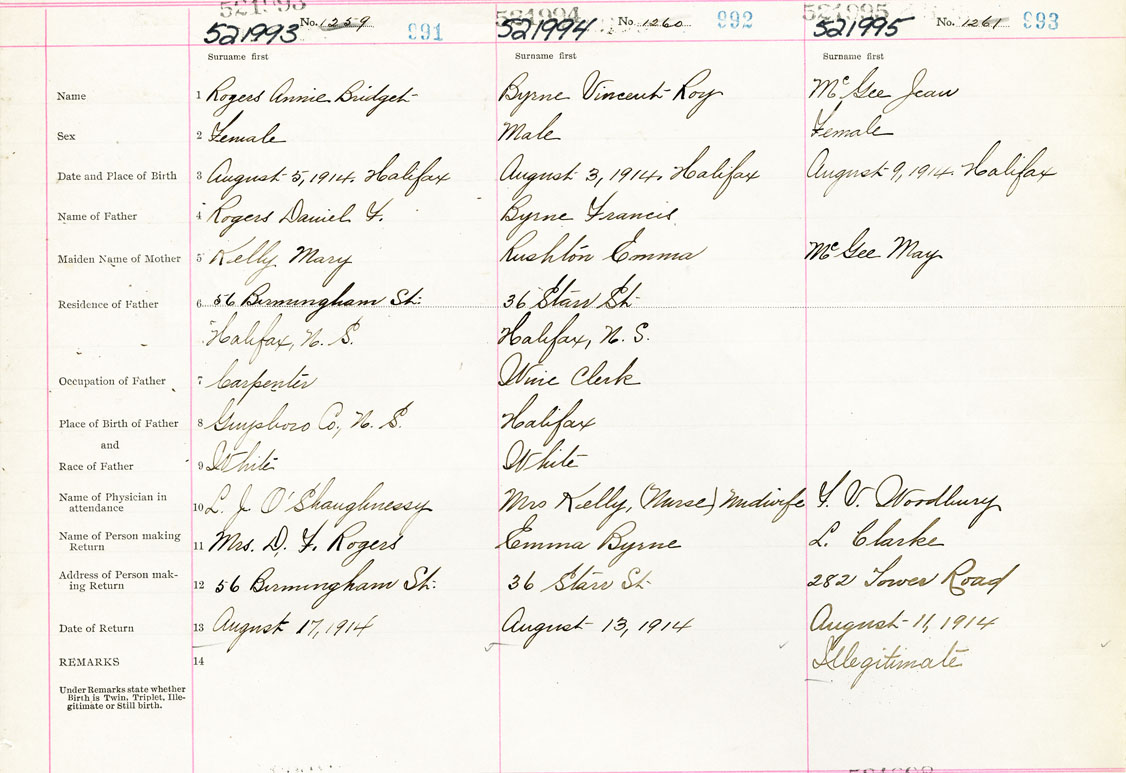 521993 521994 521995
521993 No. 1259 991 521994 No. 1260 992 521995 No. 1261 993
Surname first Surname first Surname first
Name 1 Rogers Annie Bridget Byrne Vincent Roy McGee Jean
Sex 2 Female Male Female
Date and Place of Birth 3 August 5, 1914. Halifax August 3, 1914. Halifax August 9, 1914. Halifax
Name of Father 4 Rogers Daniel F. Byrne Francis
Maiden Name of Mother 5 Kelly Mary Rushton Emma McGee May
Residence of Father 6 56 Birmingham St. 36 Starr St.
Halifax, N. S. Halifax, N. S.
Occupation of Father 7 Carpenter Wine Clerk
Place of Birth of Father 8 Guysboro Co., N. S. Halifax
and
Race of Father 9 White White
Name of Physician in
attendance 10 L. J. O'Shaughnessy Mrs Kelly, (Nurse) Midwife F. V. Woodbury
Name of Person making
Return 11 Mrs. D. F. Rogers Emma Byrne L. Clarke
Address of Person mak-
ing Return 12 56 Birmingham St. 36 Starr St. 282 Tower Road
Date of Return 13 August 17, 1914 August 13, 1914 August 11, 1914
REMARKS 14 Illegitimate
Under Remarks state whether
Birth is Twin, Triplet, Ille-
gitimate or Still birth.